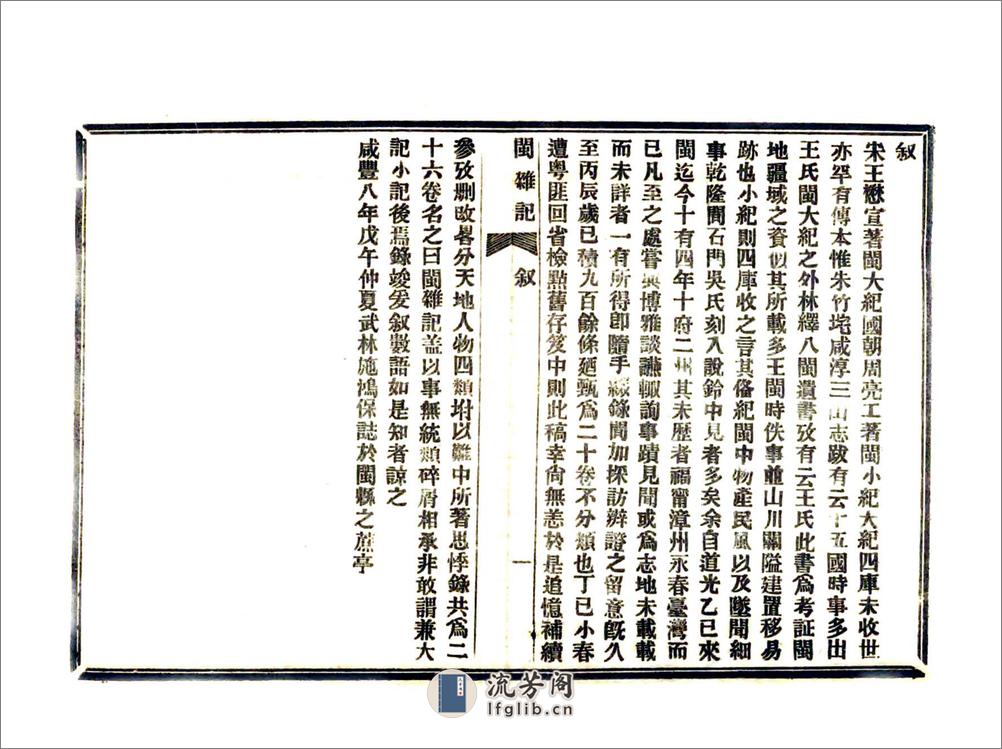 叙
宋王懋宣著閩大紀國朝周亮工著閩小紀大紀四庫未收世
亦罕有傳本惟朱竹垞咸淳三山志跋有云十五國時事多出
王氏閩大紀之外林繹八閩遺書攷有云王氏此書爲考証閩
地疆域之資似其所載多王閩時佚事並山川關隘建置移易
跡也小紀則四庫收之言其俻紀閩中物產民風以及墜聞細
事乾隆間石門吳氏刻入說鈴中見者多矣余自道光乙巳來
閩迄今十有四年十府二州其未歷者福甯漳州永春臺灣而
已凡至之處嘗與博雅談讌輙詢事蹟見聞或爲志地未載載
而未詳者一有所得卽隨手綴錄間加探訪辨證之留意旣久
至丙辰歲已積九百餘條廼甄爲二十卷不分類也丁巳小春
遭粵匪回省檢點舊存笈中則此稿幸尙無恙於是追憶補續
閩雜記
叙
一
參攷刪改畧分天地人物四類坿以難中所著思悸錄共爲二
十六卷名之曰閩雜記盖以事無統類碎屑相承非敢謂兼大
記小記後焉錄竣爰叙數語如是知者諒之
咸豐八年戊午仲夏武林施鴻保誌於閩縣之蔗亭
流芳阁
lfglib.cn